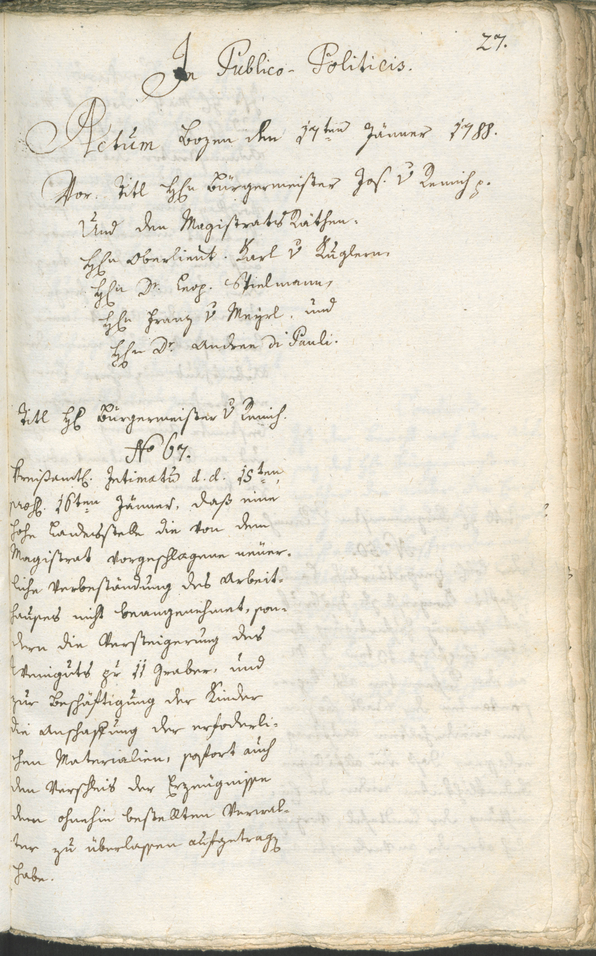 27.
In Publico-Politicis.
Actum Bozen den 17ten Jänner 1788.
Vor Titl Hhn Bürgermeister Jos. v Remich p.
Und den Magistrats Räthen.
Hhn Oberlieut. Karl v Kuglern,
Hhn Dr Leop. Stielmann,
Hhn Franz v Meyrl, und
Hhn Dr. Andree di Pauli.
Titl H Bürgermeister v Remich.
No 67.
Kreisamtl. Intimatum d.d. 15ten
16ten Jänner, daß eine
hohe Landesstelle die von dem
Magistrat vorgeschlagene neüer-
liche Verbeständung des Arbeit-
hauses nicht beangenehmet, son-
dern die Versteigerung des
Weinguts pr 11 Graber, und
zur Beschäftigung der Kinder
die Anschaffung der erforderli-
chen Materialien, sofort auch
den Verschleis der Erzeugnisse
dem ohnehin bestellten Verwal-
ter zu überlassen aufgetragen
habe.